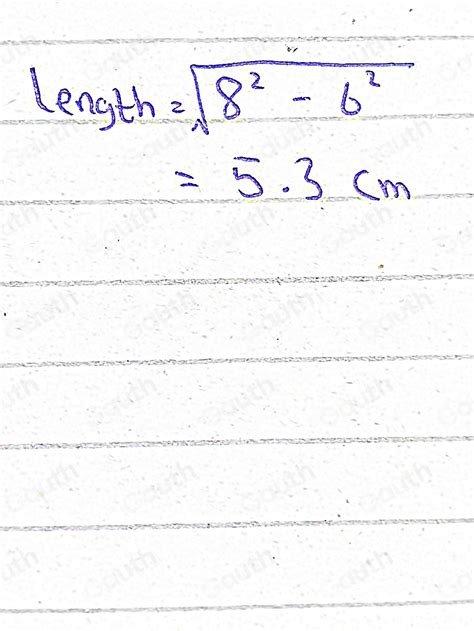 length = √8² - 6²
= 5.3 cm